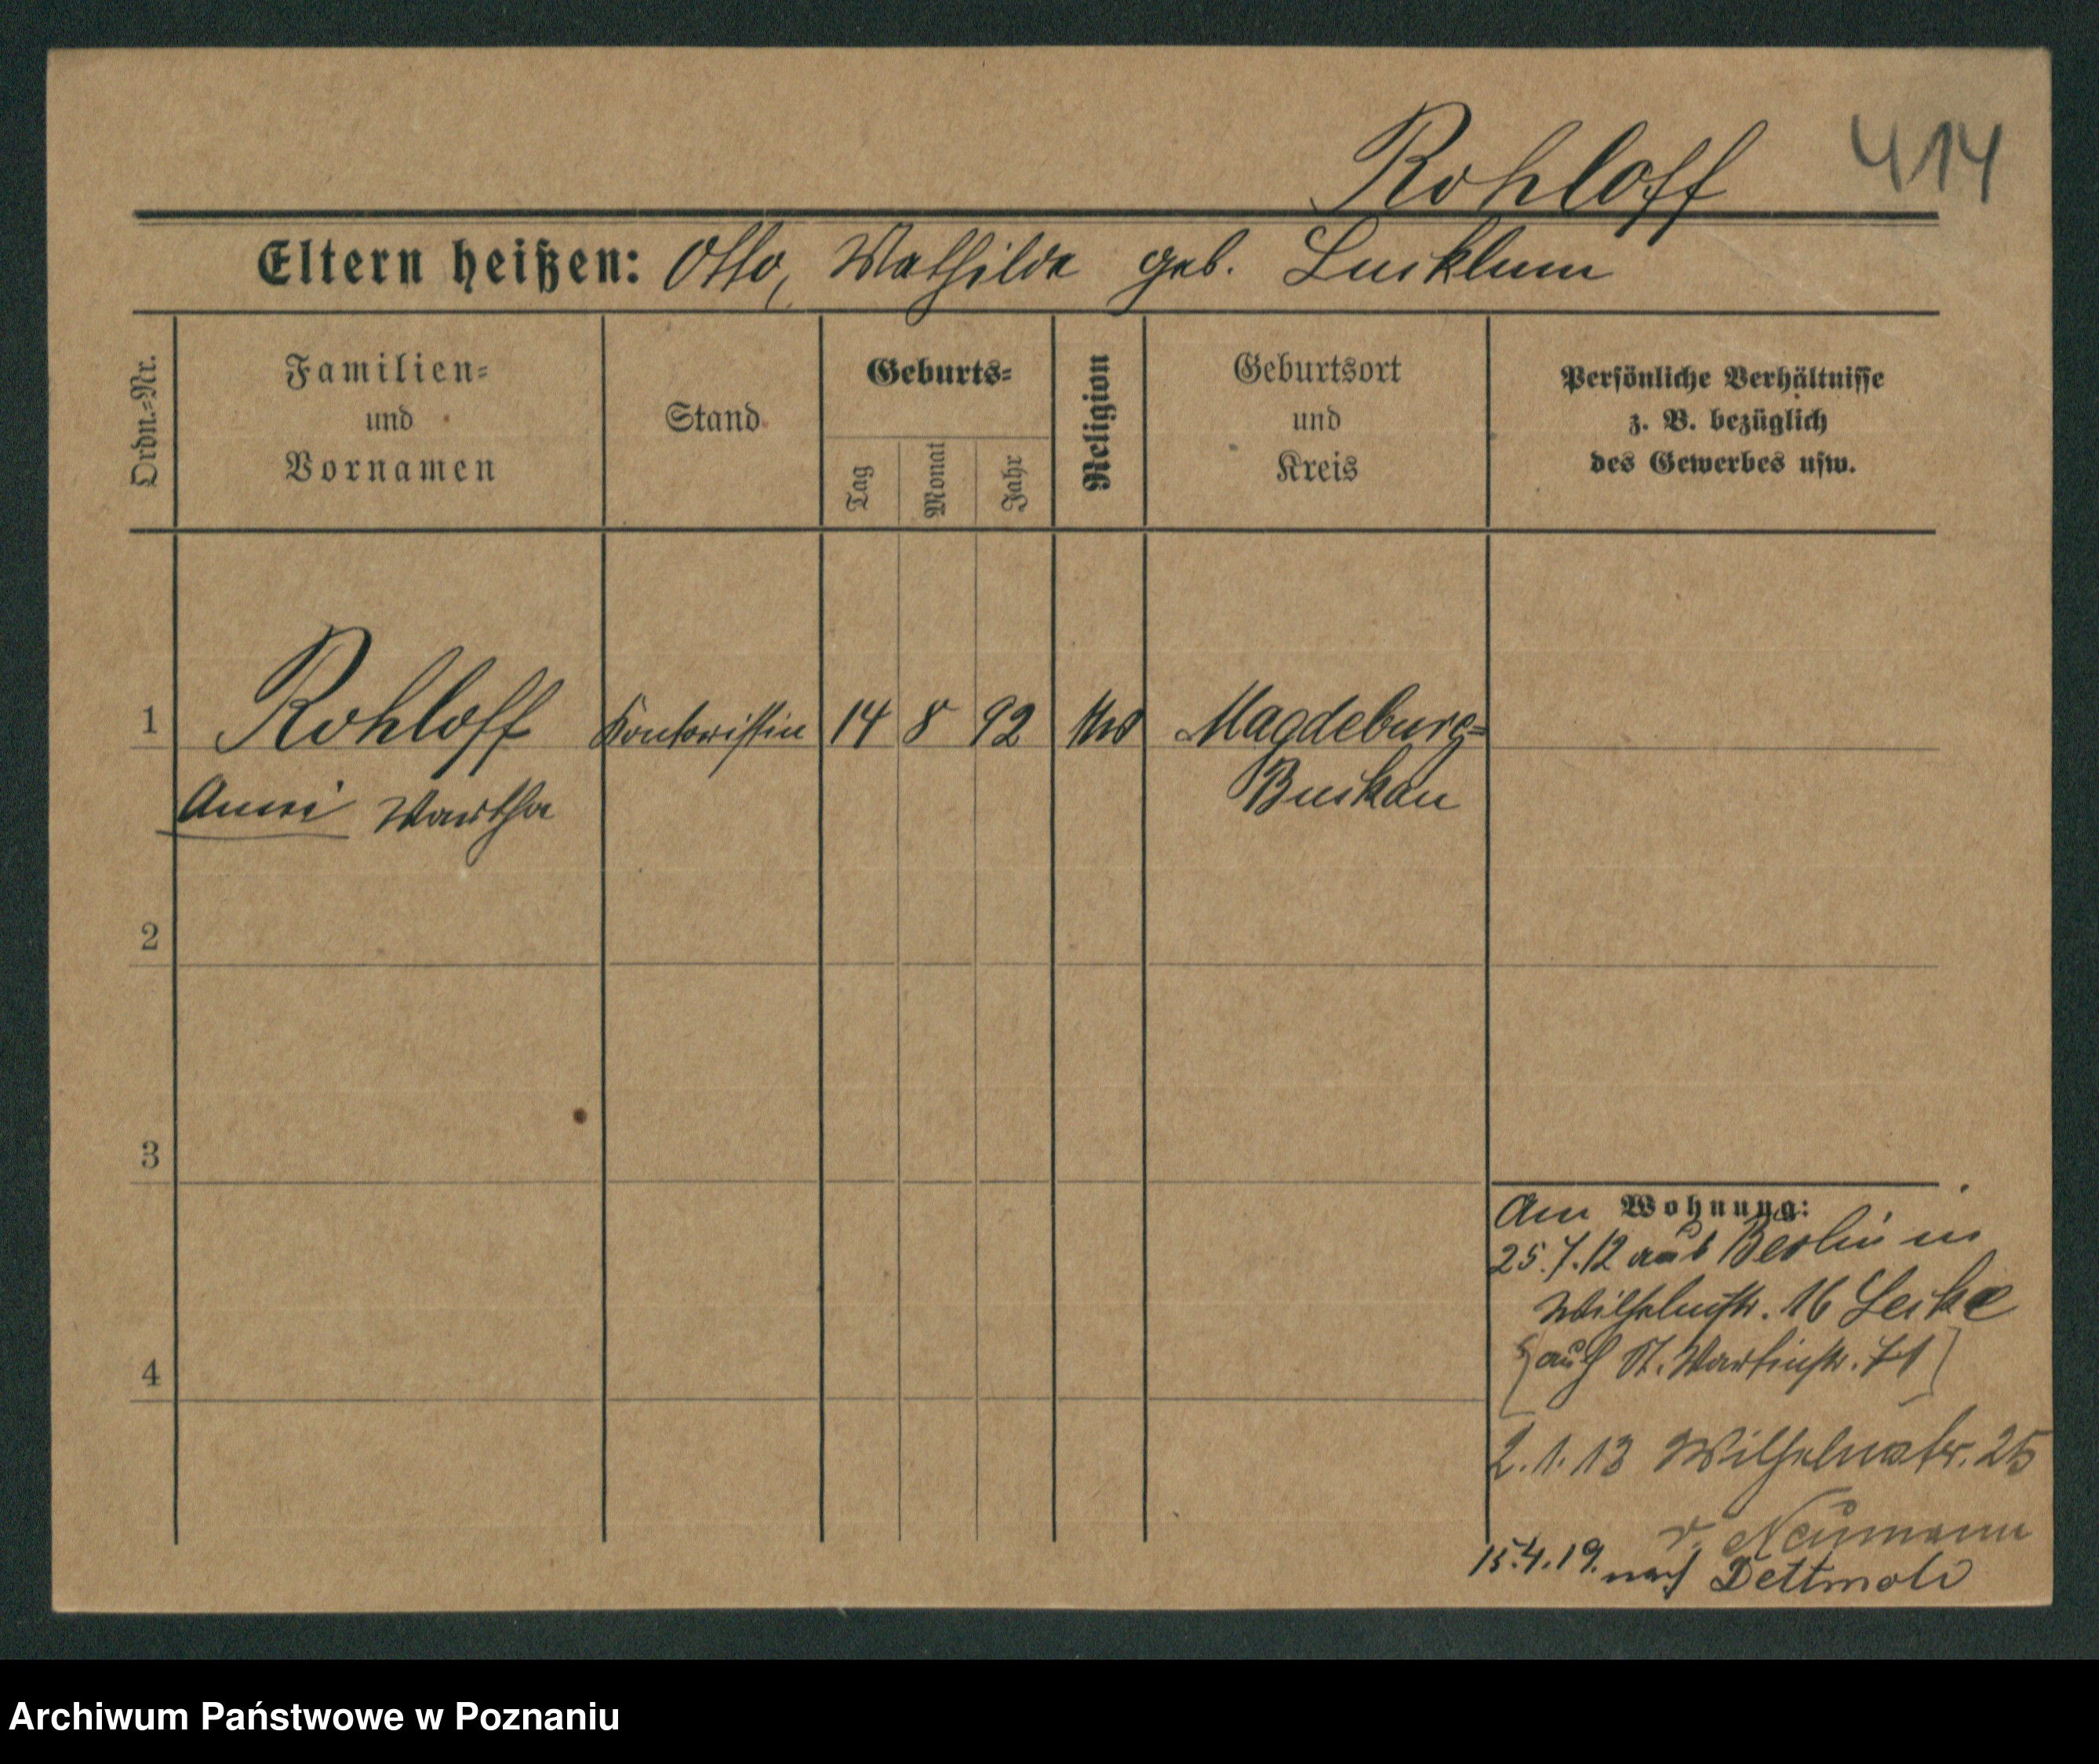 Rohloff 414
Eltern heißen: Otto, Mathilde geb. Lucklum
Ordn.=Nr.
Familien=
und
Vornamen
Stand
Geburts=
Tag
Monat
Jahr
Religion
Geburtsort
und
Kreis
Persönliche Verhältnisse
z. B. bezüglich
des Gewerbes usw.
1 Rohloff Kontoristin 14 8 92 Magdeburg=
Anni Martha Buckau
2
3
4
Wohnung:
Am
25.7.12 aus Berlin in
Wilhelmstr. 16
auch St. Martinstr. 71
2.1.13 Wilhelmstr. 25
v. Neumann
15.4.19. nach Dettmold
Archiwum Państwowe w Poznaniu